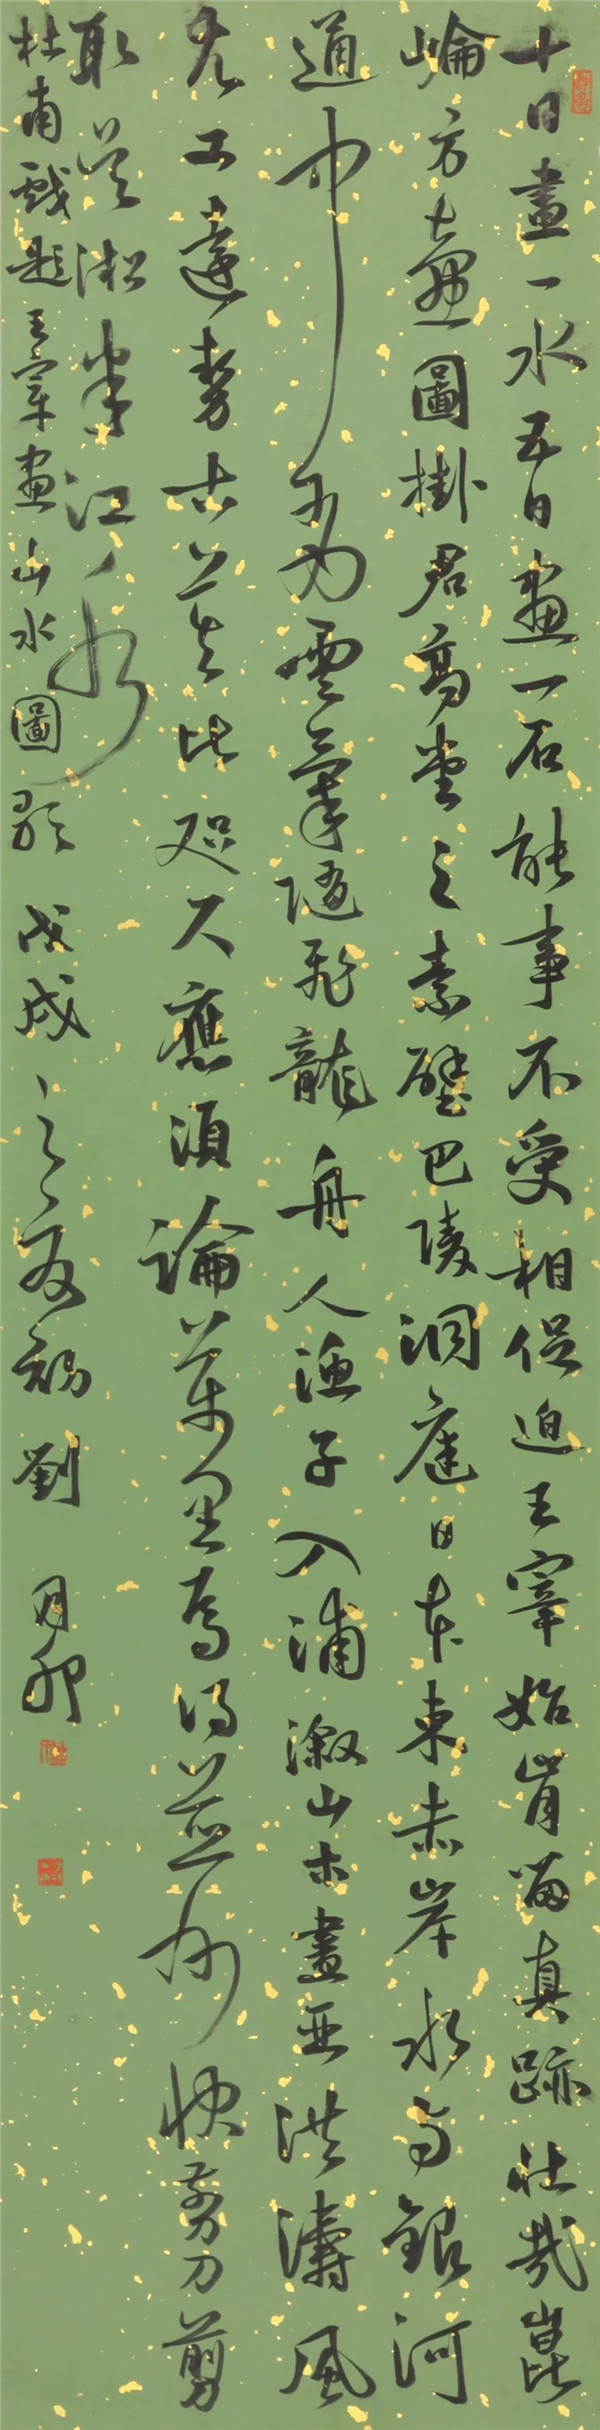 十日畫一水五日畫一石能事不受相促迫王宰始肯留真跡壯哉崑
崙方壺圖掛君高堂之素壁巴陵洞庭日本東赤岸水与銀河
通中有雲氣隨飛龍舟人漁子入浦溆山木盡亞洪濤風
尤工遠勢古莫比咫尺應須論萬里焉得並州快剪刀剪
取吳淞半江水
杜甫戲題王宰畫山水圖歌 戊戌之夏初劉月卯